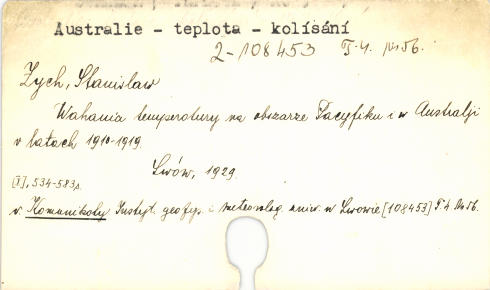 Australie - teplota - kolísání
2-108453 T.4. № 56.
Zych, Stanisław
Wahania temperatury na obszarze Pacyfiku i w Australji
w latach 1910-1919.
Lwów, 1929.
[I], 534-583 s.
v Komunikaty Instyt. geofyz. i meteorolog. uniw. w Lwowie [108453] T. 4. № 56.